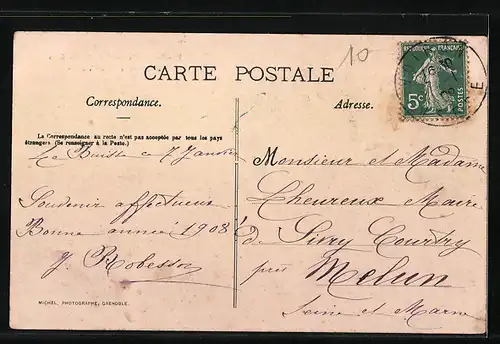 10
CARTE POSTALE
Correspondance.
Adresse.
REPUBLIQUE FRANÇAISE
5c
POSTES
E
La Correspondance au recto n'est pas acceptée par tous les pays
étrangers (Se renseigner à la Poste.)
La Buisse 7 Janvier
Souvenir affectueux
Bonne année 1908
J. Robesson
Monsieur et Madame
Lheureux Maire
de Sivry Courtry
près Melun
Seine et Marne
MICHEL, PHOTOGRAPHE, GRENOBLE.